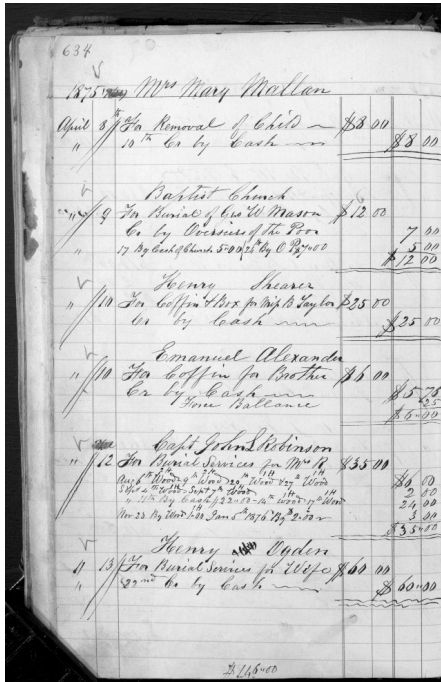 634
1875 Mrs Mary Mallan
April 8th For Removal of Child $8 00
" 10th Cr by Cash $8 00
Baptist Church
" 9 For Burial of Geo W Mason $12 00
Cr by Overseers of the Poor 7 00
" 17 By Cash of Church 5"00 28th By O P 7"00 5 00
$12 00
Henry Shearer
" 10 For Coffin & Box for B Taylor $25 00
Cr by Cash $25 00
Emanuel Alexander
" 10 For Coffin for Brother $6 00
Cr by Cash $5 75
Ballance 25
$6"00
Capt John S Robinson
" 12 For Burial Services for Mrs R $35 00
Aug 6th Wood 29 Wood Wood $6 00
Sept 4th Wood Sept 7th Wood 2 00
By Cash $22"00 Wood Wood 24 00
Nov 23 By Wood 1"00 Jan 5th 1876 By 2"00 3 00
$35"00
Henry Ogden
" 13 For Burial Services for Wife $60 00
" 22nd Cr by Cash $60"00
$146"00